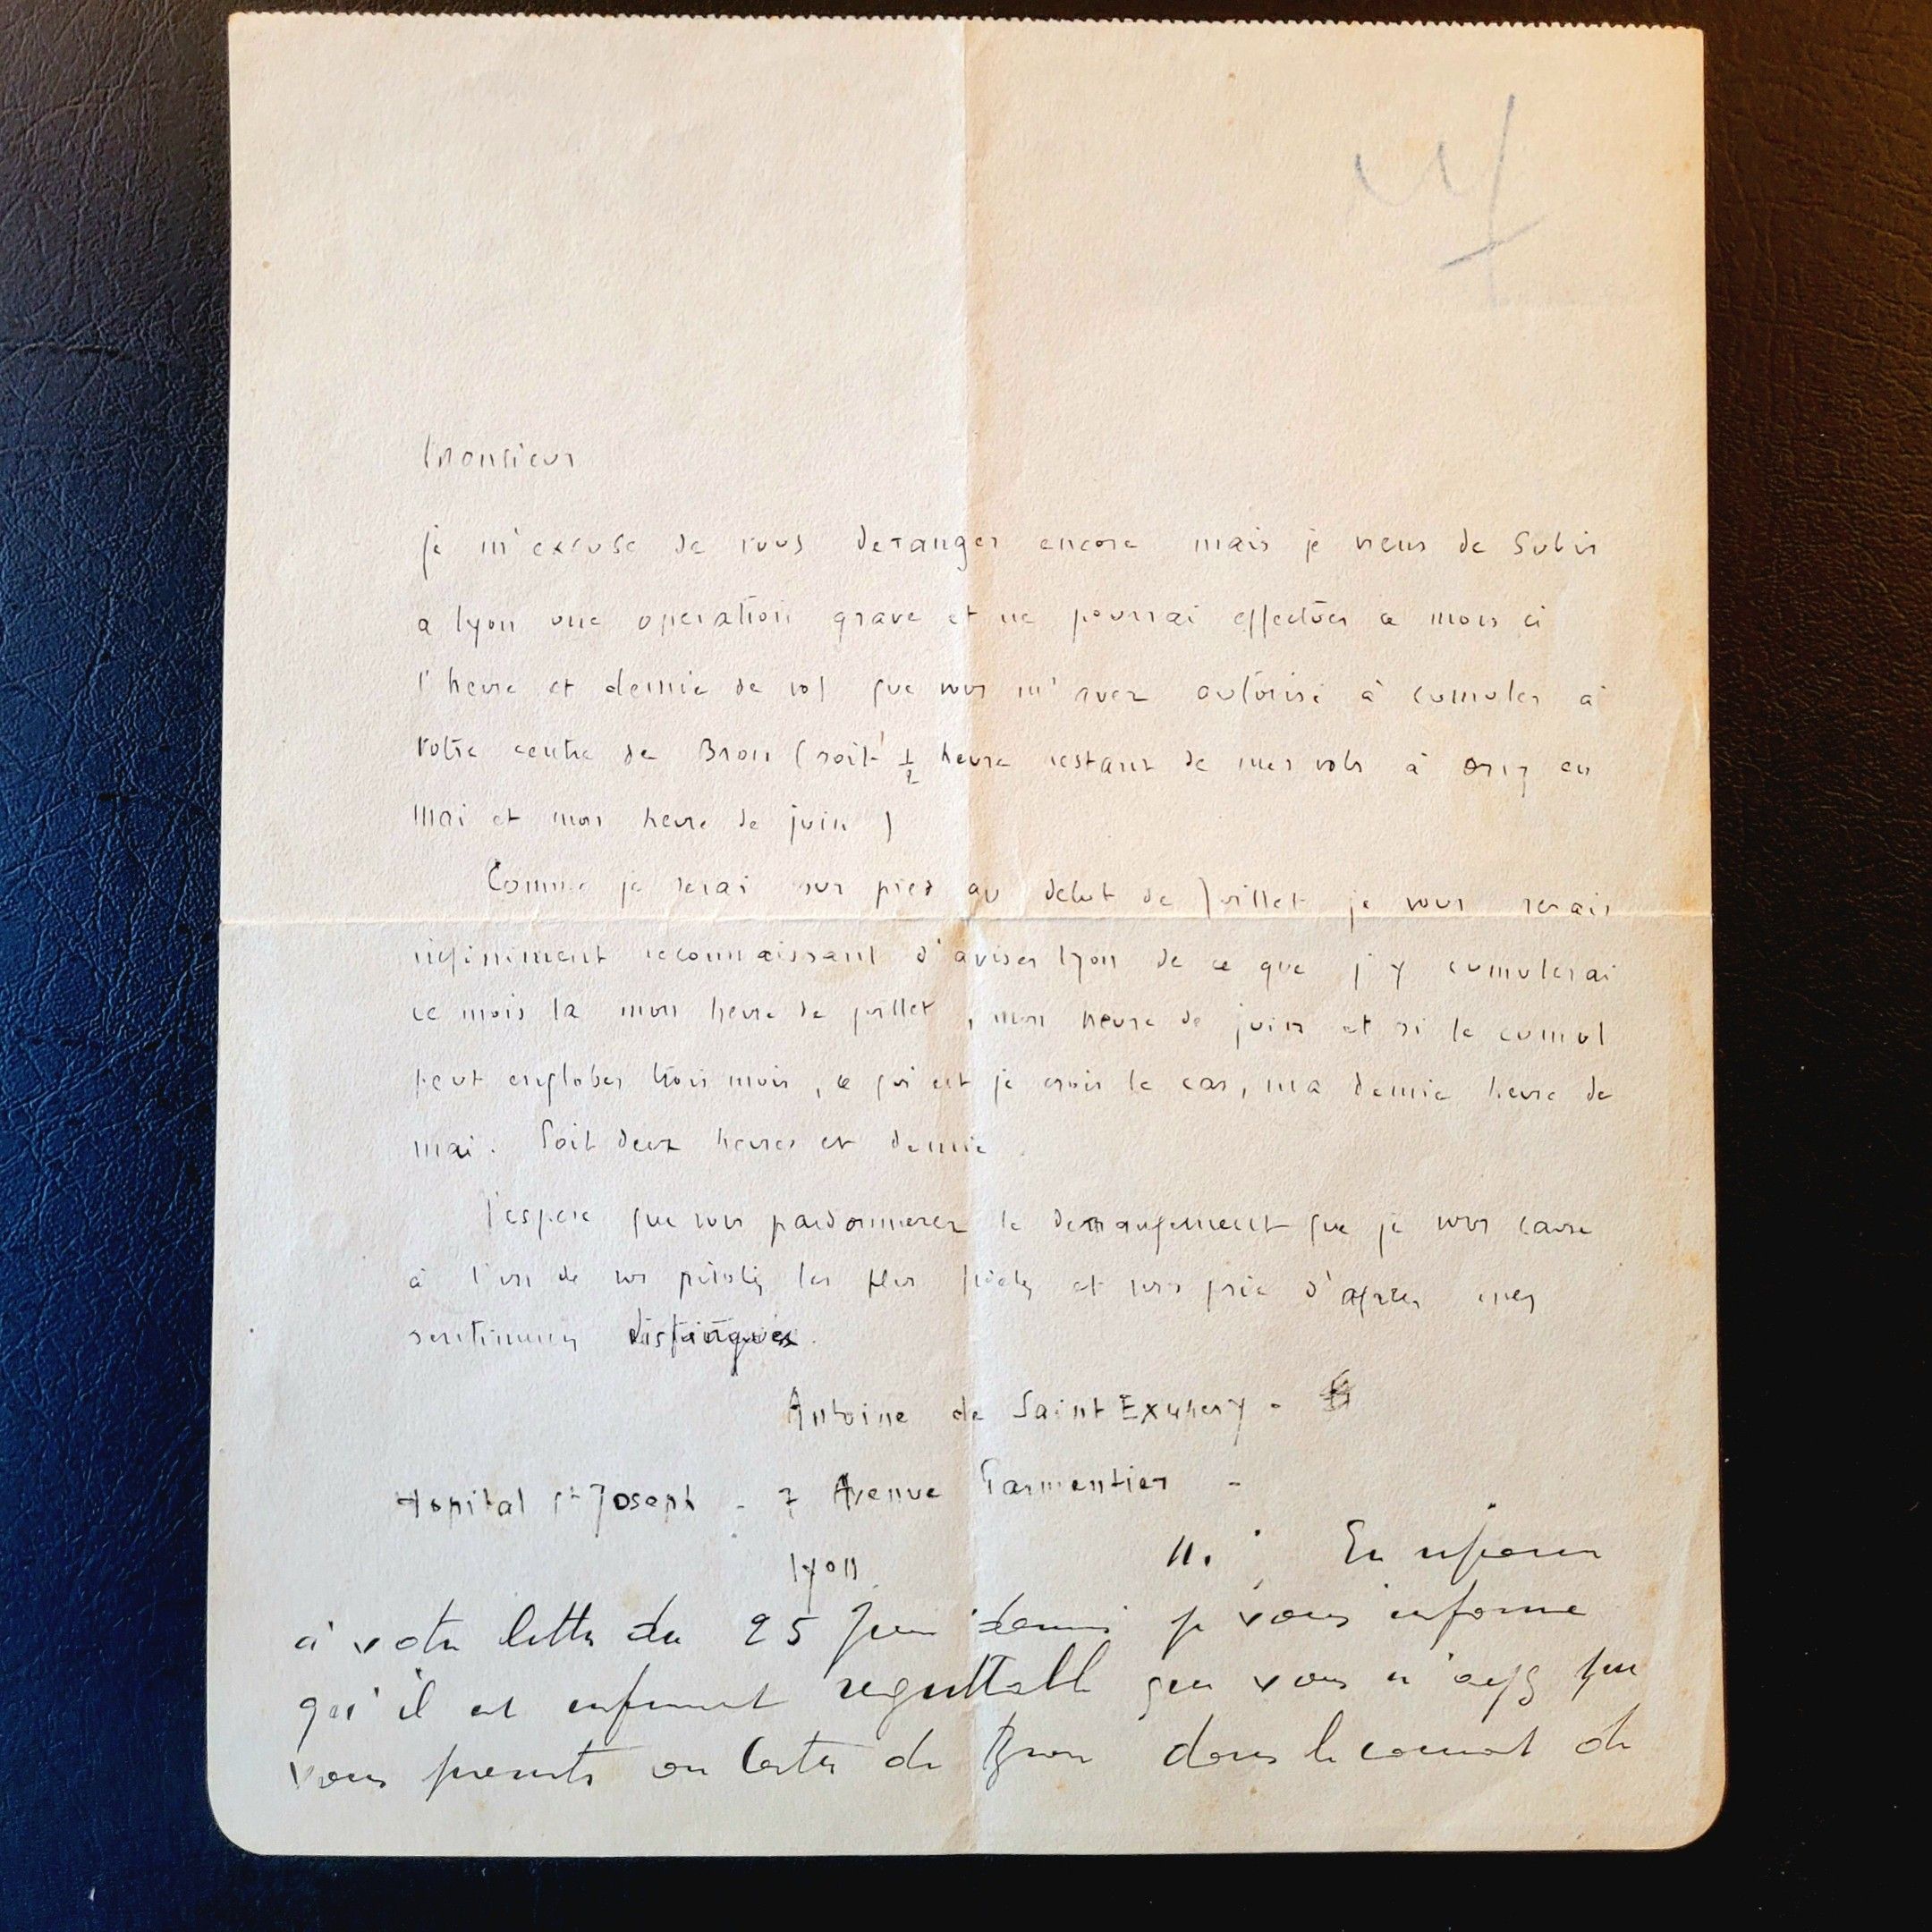 Monsieur
je m'excuse de vous deranger encore mais je viens de subir
a Lyon une operation grave et ne pourrai effectuer ce mois ci
l'heure et demie de vol que vous m'avez autorisé à cumuler à
votre centre de Bron (soit 1/2 heure restant de mes vols à Orly en
mai et mon heure de juin)
Comme je serai sur pied au debut de Juillet je vous serais
infiniment reconnaissant d'aviser Lyon de ce que j'y cumulerai
ce mois la mon heure de juillet, mon heure de juin et si le cumul
peut englober trois mois, ce qui est je crois le cas, ma demie heure de
mai. Soit deux heures et demie
J'espere que vous pardonnerez le derangement que je vous cause
à l'un de vos pilotes les plus et vous prie d'agreer mes
sentiments distingués.
Antoine de Saint Exupery -
Hopital St Joseph - 7 Avenue Parmentier -
Lyon
M. En reponse
à votre lettre du 25 Juin dernier je vous informe
qu'il est infiniment regrettable que vous n'ayez pu
vous presenter au Centre de Bron dans le courant de